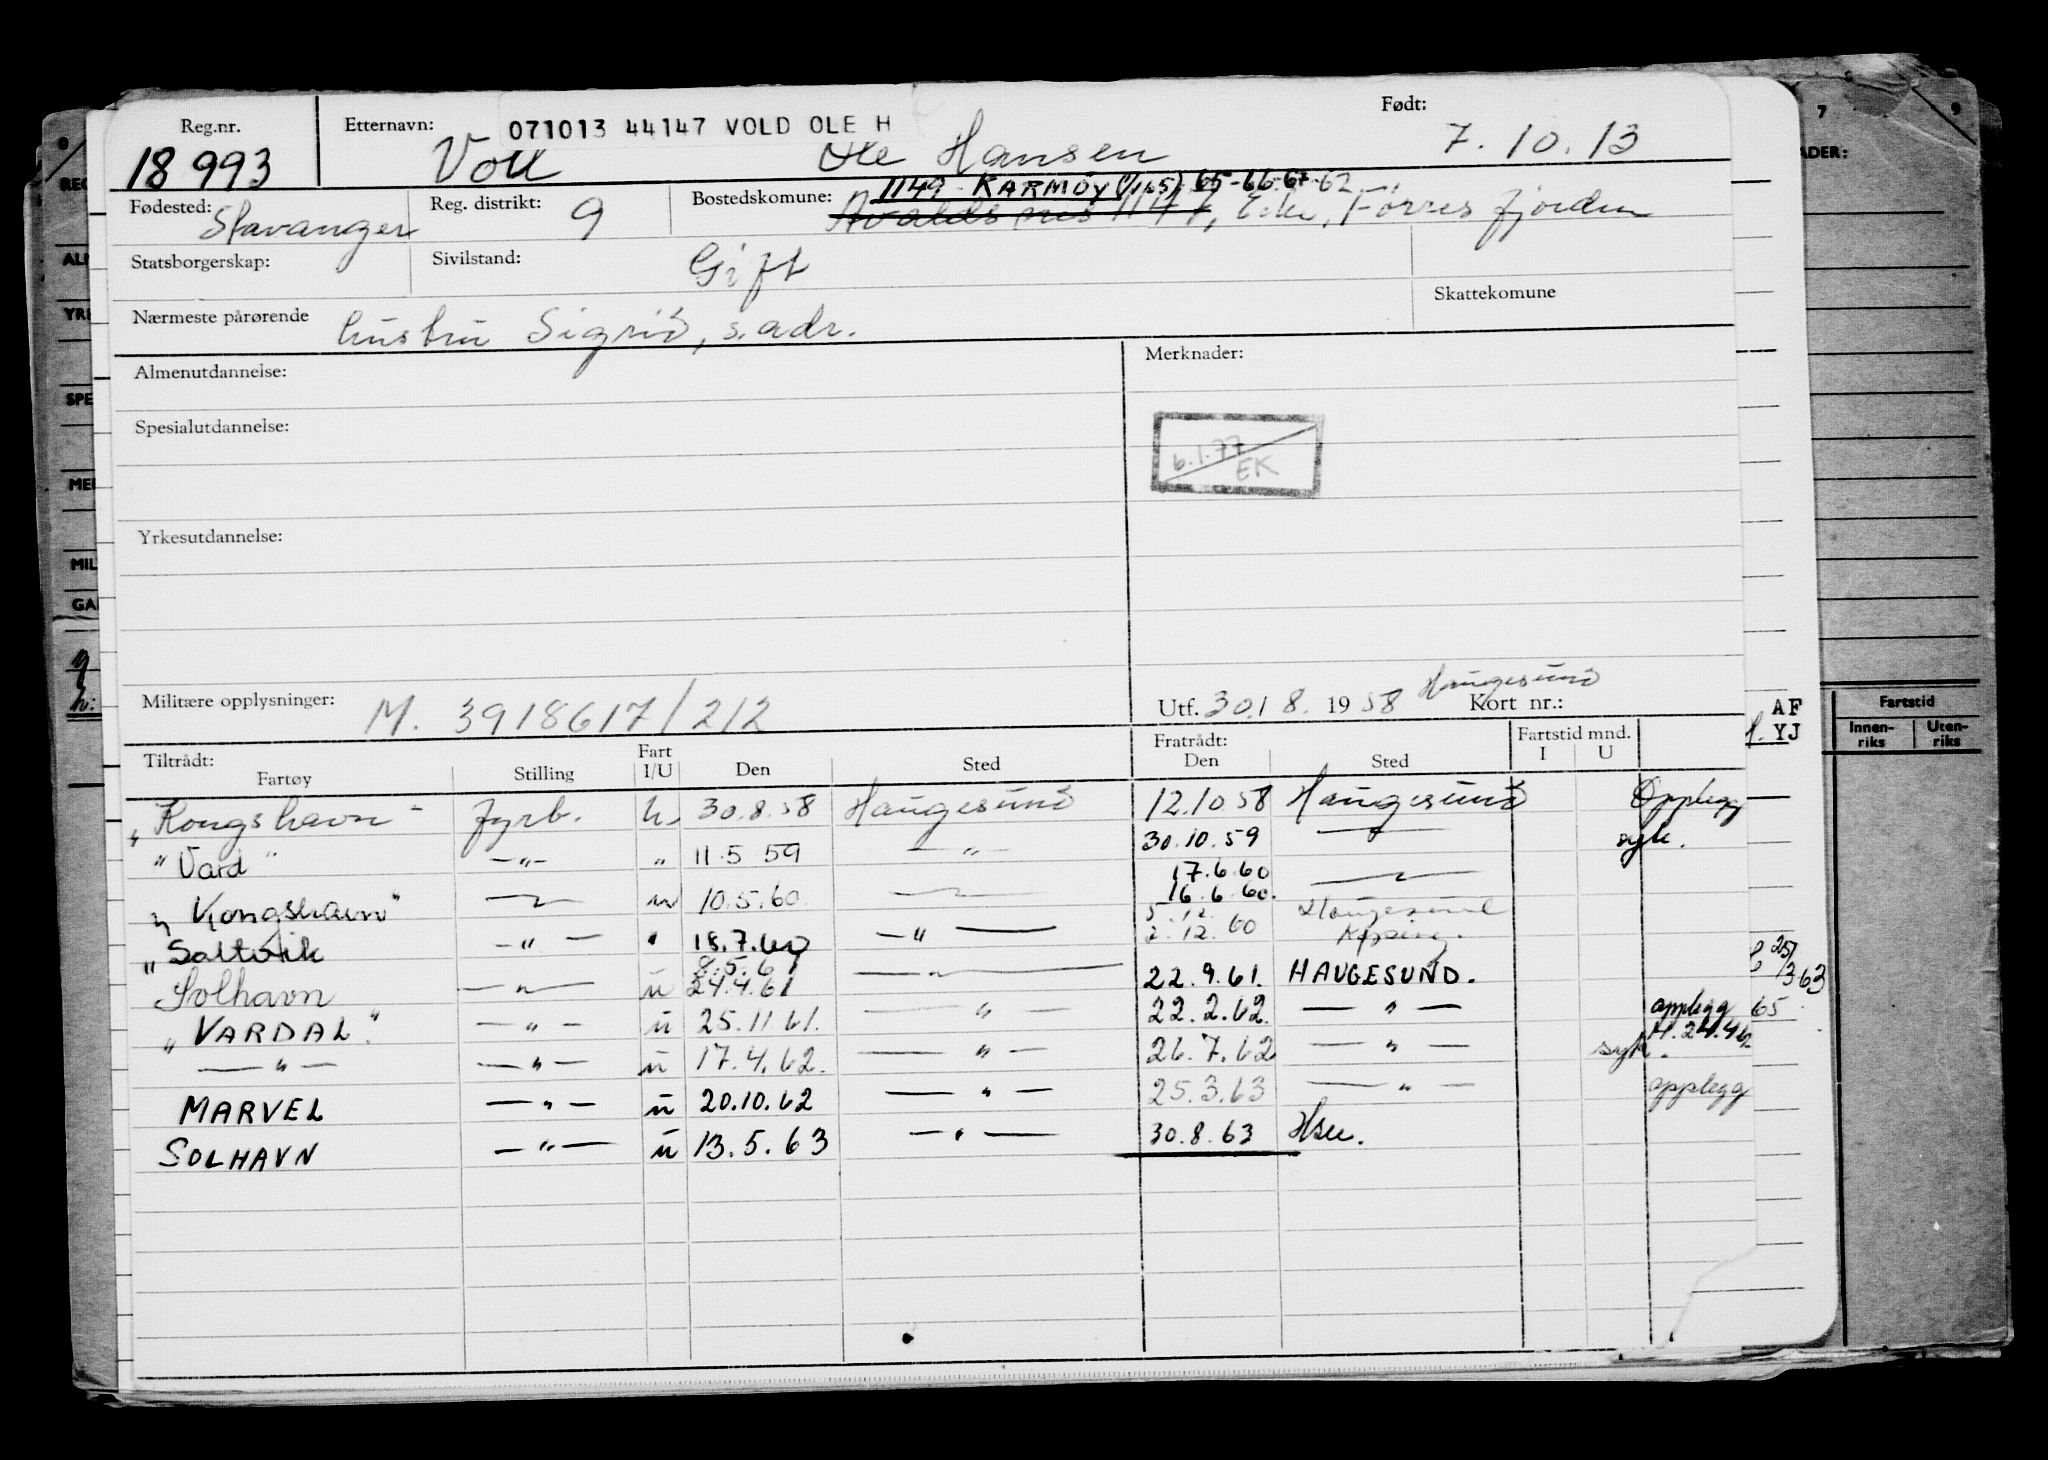 Reg.nr. Etternavn: 071013 44147 VOLD OLE H Født:
18993 Voll Ole Hansen 7.10.13
1149 KARMØY (1/1 65) 65-66-67-62
Fødested: Stavanger Reg. distrikt: 9 Bostedskomune: Avaldsnes 1147, Eike, Førresfjorden
Statsborgerskap: Sivilstand: Gift
Skattekomune
Nærmeste pårørende hustru Sigrid, s. adr.
Almenutdannelse: Merknader:
Spesialutdannelse:
6.1.77
EK
Yrkesutdannelse:
Militære opplysninger: M. 3918617/212 Utf. 30/8. 1958 Haugesund Kort nr.:
Tiltrådt: Fart Fratrådt: Fartstid mnd.
Fartøy Stilling I/U Den Sted Den Sted I U
"Kongshavn" fyrb. u 30.8.58 Haugesund 12.10 58 Haugesund Opplegg
"Vard" —"— " 11.5 59 —"— 30.10.59 —— syk.
17.6.60
"Kongshavn" —"— u 10.5.60 —"— 16.6.60. —"—
5.12.
"Saltvik —"— " 18.7.60 —"— 2.12.60 Haugesund
8.5.61
Solhavn —"— u 24.4.61 —"— 22.9.61. HAUGESUND.
"VARDAL". —"— u 25.11.61. —"— 22.2.62. —"— opplegg
H. 24.4.62
—"— —"— u 17.4.62. —"— 26.7.62 —"— syk.
MARVEL —"— u 20.10.62 —"— 25.3.63 —"— opplegg
SOLHAVN —"— u 13.5.63 —"— 30.8.63 Hsu.
7 9
ADER:
REG
ALM
YRK
SPE
MEI
MIL
GA
AF
YJ
Fartstid
Innen-
riks
Uten-
riks
25/
3 63
65